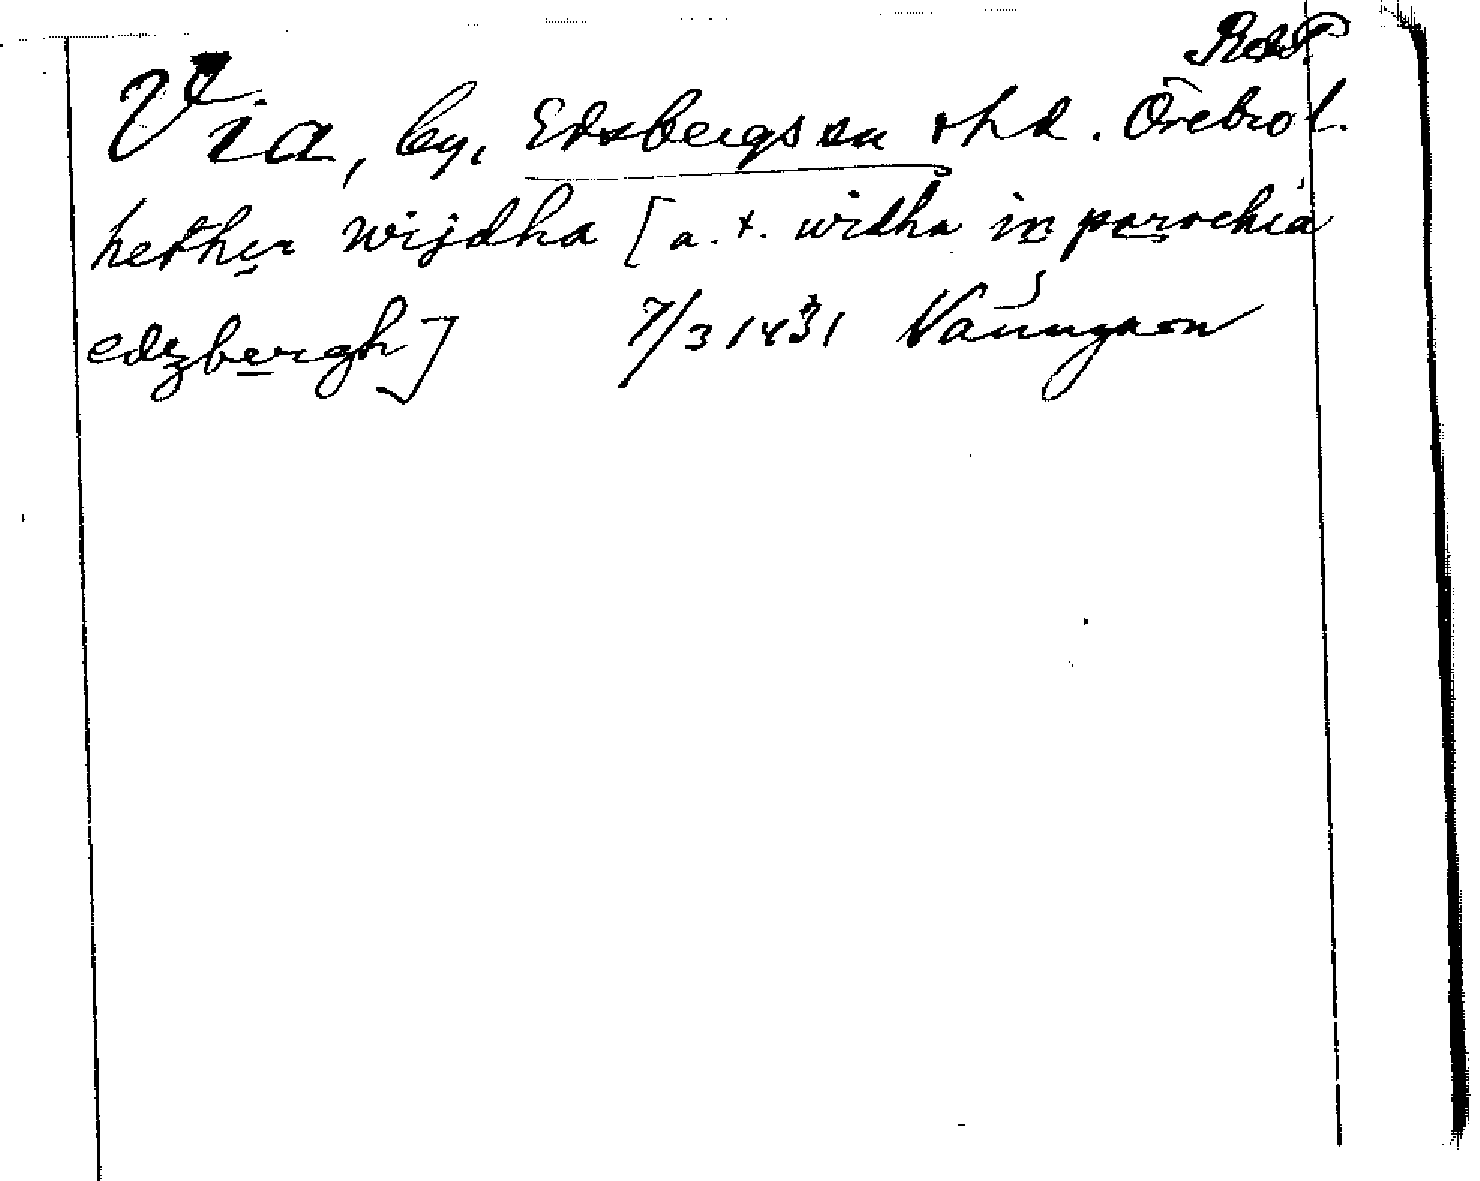 Via, by, Edsbergs sn o hd. Örebro l.
hether wijdha [a. t. widha in parochia
edzbergh] 7/3 1431